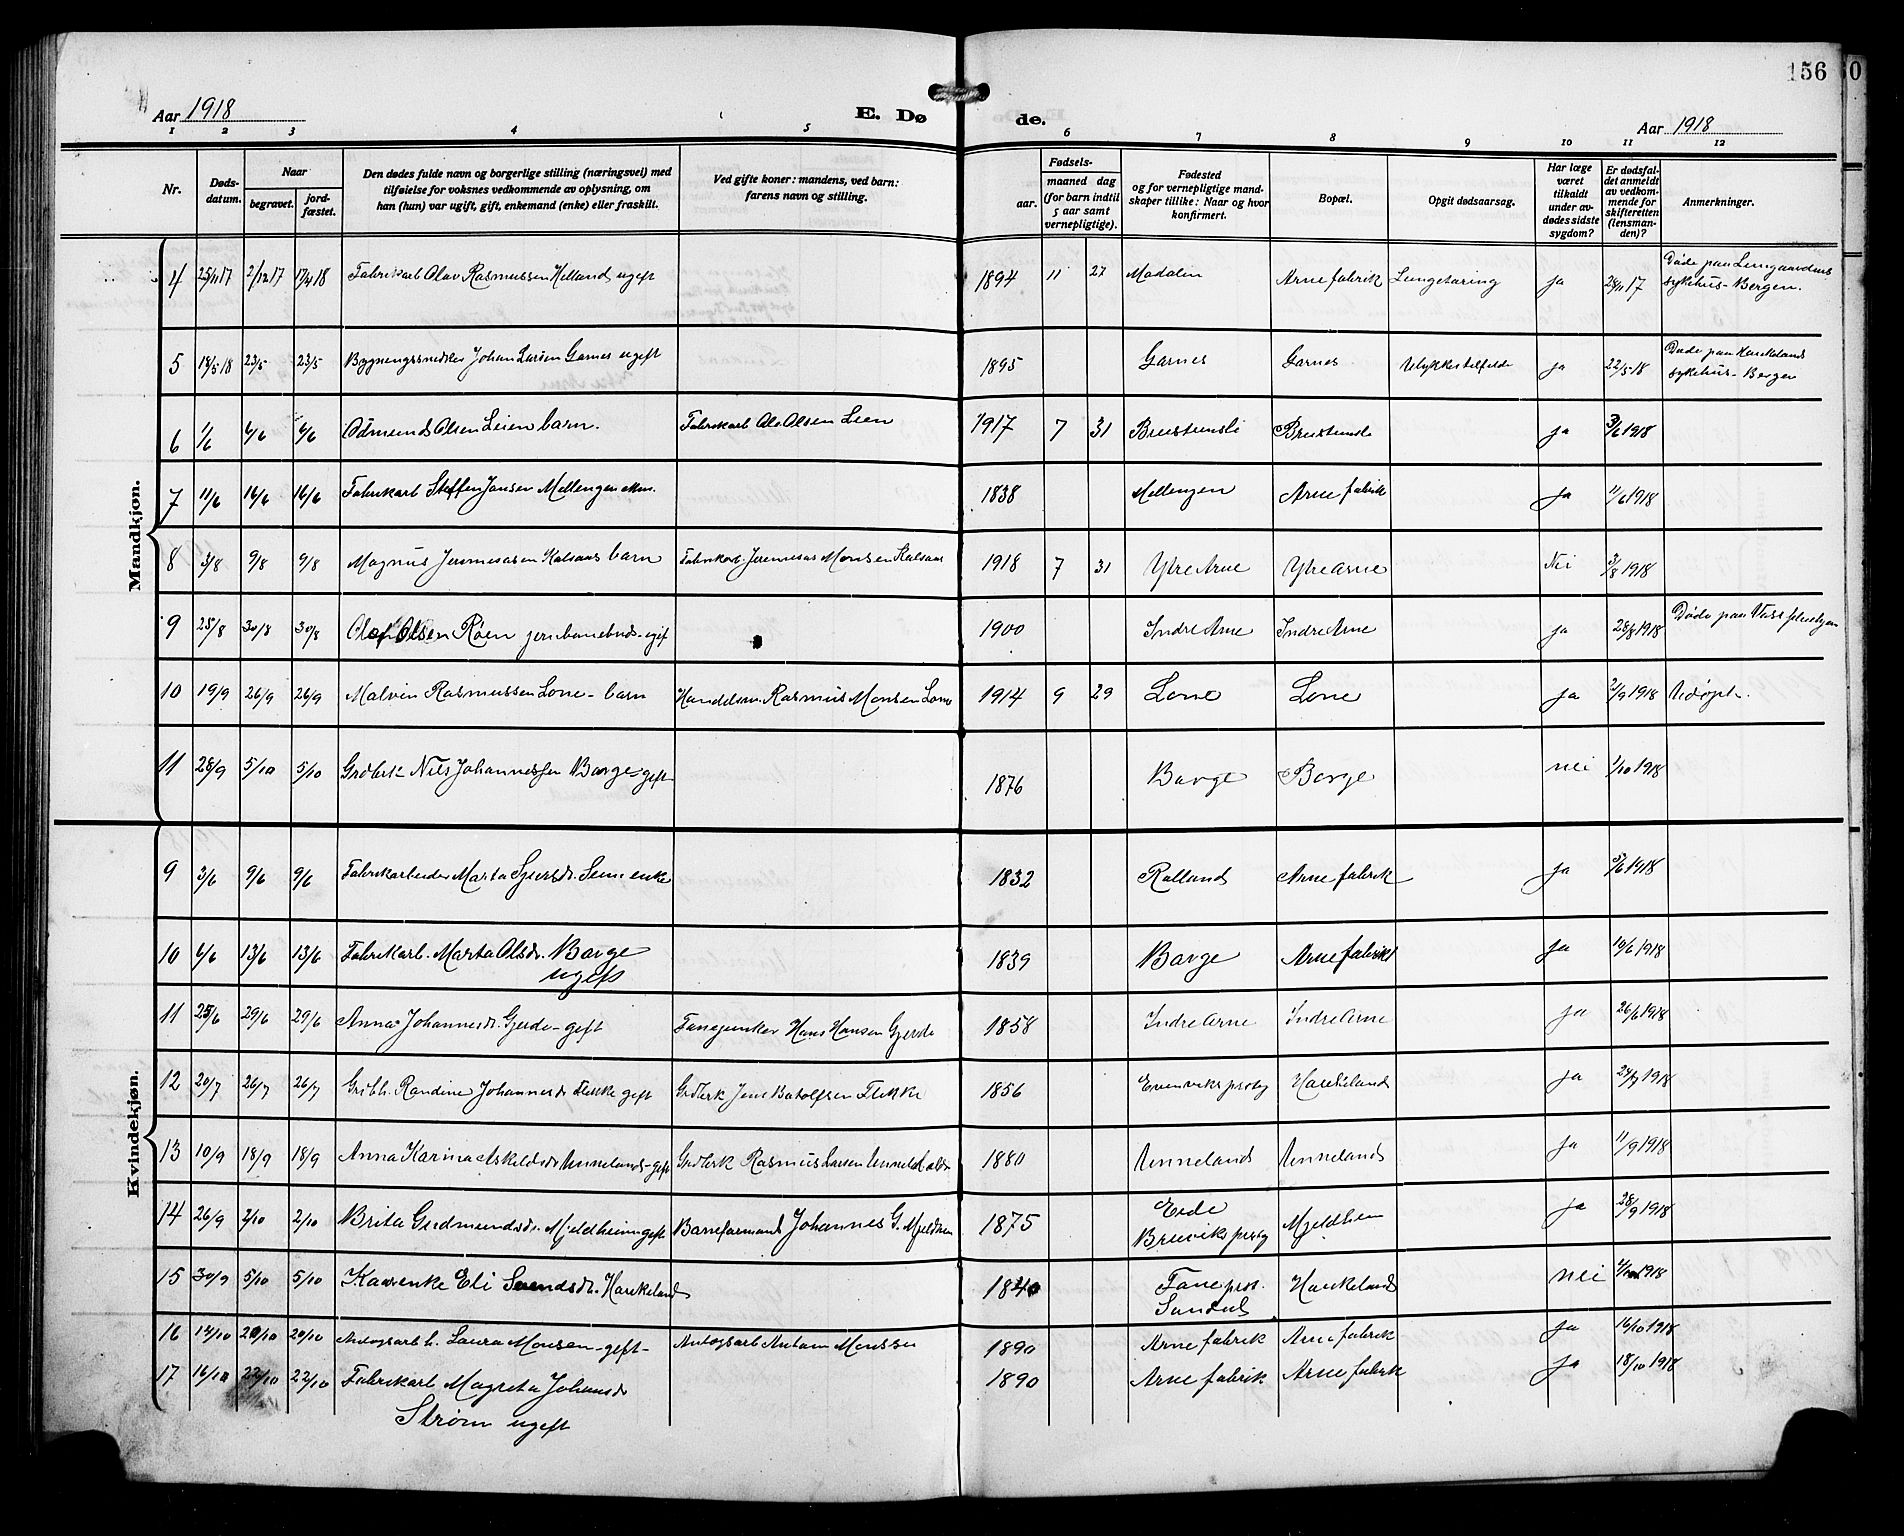 156
0
Aar 1918
E. Dø
de.
Aar 1918
1 2 3 4 5 6 7 8 9 10 11 12
Nr.
Døds-
datum.
Naar
begravet.
jord-
fæstet.
Den dødes fulde navn og borgerlige stilling (næringsvei) med
tilføielse for voksnes vedkommende av oplysning, om
han (hun) var ugift, gift, enkemand (enke) eller fraskilt.
Ved gifte koner: mandens, ved barn:
farens navn og stilling.
Fødsels-
aar.
maaned dag
(for barn indtil
5 aar samt
vernepligtige).
Fødested
og for vernepligtige mand-
skaper tillike: Naar og hvor
konfirmert.
Bopæl.
Opgit dødsaarsag.
Har læge
været
tilkaldt
under av-
dødes sidste
sygdom?
Er dødsfal-
det anmeldt
av vedkom-
mende for
skifteretten
(lensman-
den)?
Anmerkninger.
Mandkjøn.
4 25/11 17 2/12 17 17/4 18 Fabrikarb Olav Rasmussen Helland ugift 1894 11 27 Madalen Arne fabrik Lungetæring ja 28/11 17 Døde paa Lungaardens
sykehus - Bergen.
5 18/5 18 23/5 23/5 Bygningssnedker Johan Larsen Garnes ugift 1895 Garnes Garnes Ulykkestilfelde ja 22/5 18 Døde paa Haukelands
sykehus - Bergen
6 1/6 6/6 6/6 Odmund Olsen Leien barn. Fabrikarb Ole Olsen Leien 1917 7 31 Brustunsli Brustunsli ja 3/6 1918
7 11/6 16/6 16/6 Fabrikarb Steffen Jansen Mellengen ekm. 1838 Mellengen Arne fabrik ja 11/6 1918
8 3/8 9/8 9/8 Magnus Jeremiasen Kalsaas barn Fabrikarb. Jeremias Monsen Kalsaas 1918 7 31 Ytre Arne Ytre Arne Nei 3/8 1918
9 25/8 30/8 30/8 Olaf Olsen Røen jernbanebud - ugif 1900 Indre Arne Indre Arne ja 28/8 1918 Døde paa Voss
10 19/9 26/9 26/9 Malvin Rasmussen Lone - barn Handelsm. Rasmus Monsen Lone 1914 9 29 Lone Lone ja 21/9 1918 Udøpt.
11 28/9 5/10 5/10 Grdbrk Nils Johannessen Borge - gift 1876 Borge Borge nei 1/10 1918
Kvindekjøn.
9 3/6 9/6 9/6 Fabrikarbeider Marta Sjursdr. Seim enke 1832 Rolland Arne fabrik ja 5/6 1918
10 6/6 13/6 13/6 Fabrikarb. Marta Olsdr. Borge
ugift 1839 Borge Arne fabrik ja 10/6 1918
11 25/6 29/6 29/6 Anna Johannesdr. Gjerde - gift Hans Hansen Gjerde 1858 Indre Arne Indre Arne ja 26/6 1918
12 20/7 26/7 26/7 Grdbh. Randine Johannesdr Flekke gift Grdbrk Jens Botolfsen Flekke 1856 Evenviks prstg Haukeland ja 24/7 1918
13 10/9 18/9 18/9 Anna Karina Askildsdr Unneland - gift Grdbrk Rasmus Larsen Unneland 1880 Unneland Unneland ja 11/9 1918
14 26/9 2/10 2/10 Brita Gudmundsdr. Mjeldheim gift Baneformand Johannes G. Mjeldheim 1875 Eide
Bruviks prstg Mjeldhem ja 28/9 1918
15 30/9 5/10 5/10 Kaarenke Eli Svendsdr. Haukeland 1840 Fane prst.
Sandal Haukeland nei 1/10 1918
16 14/10 20/10 20/10 Anlægsarb h. Laura Monsen - gift - Anlægsarb Antam Monssen 1890 Arne fabrik Arne fabrik ja 16/10 1918
17 16/10 22/10 22/10 Fabrikarb Magreta Johansdr
Strøm ugift 1890 Arne fabrik Arne fabrik ja 18/10 1918